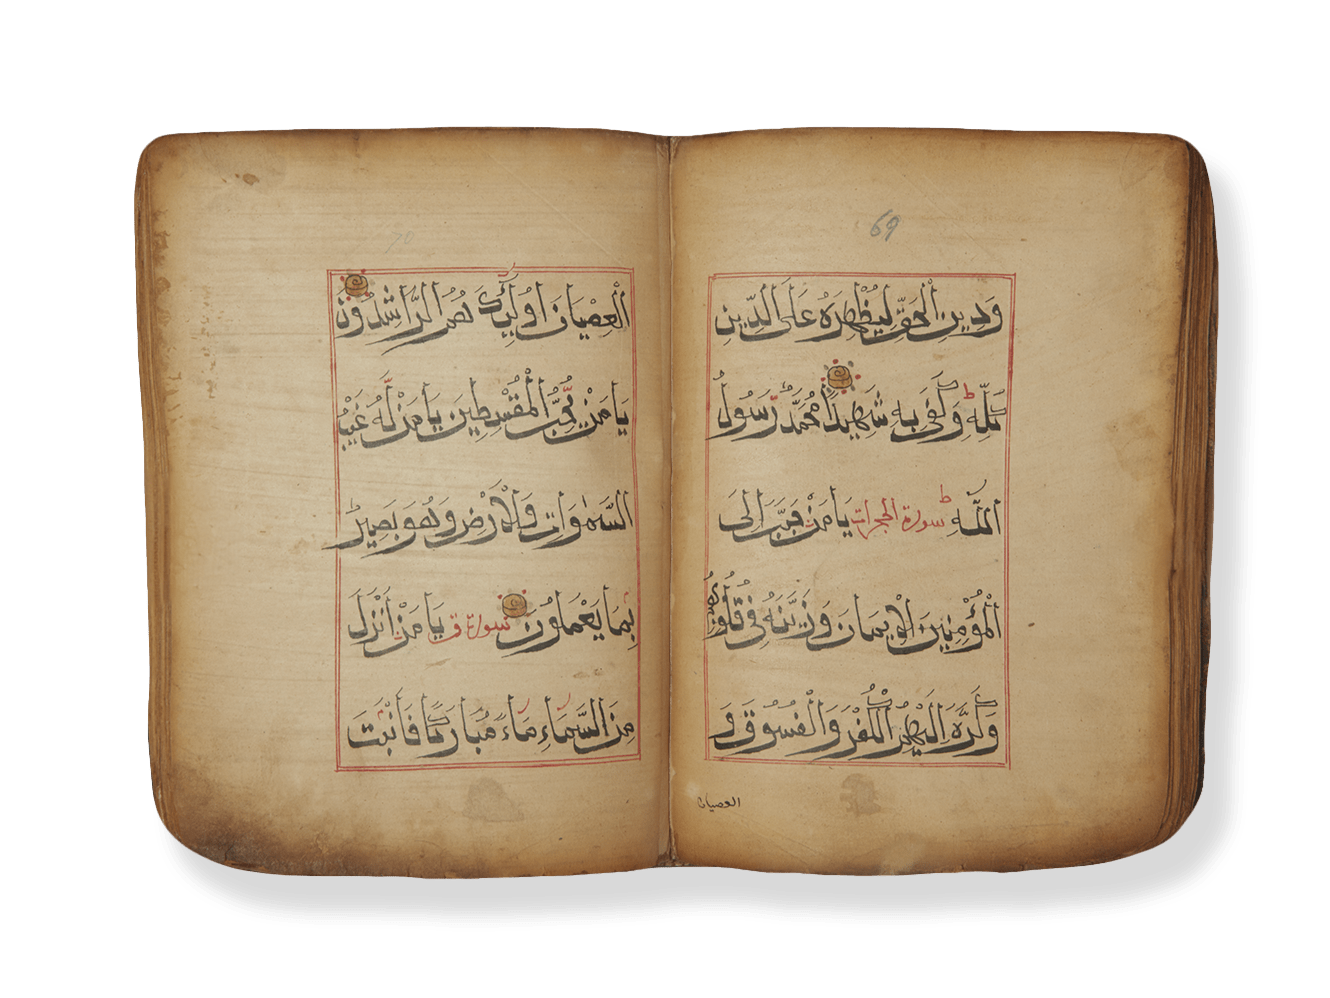 69
وَدِينِ الْحَقِّ لِيُظْهِرَهُ عَلَى الدِّينِ
كُلِّهِ وَكَفَى بِهِ شَهِيدًا مُحَمَّدٌ رَسُولُ
اللَّهِ سورة الحجرات يَا مَنْ حَبَّبَ إِلَى
الْمُؤْمِنِينَ الْإِيمَانَ وَزَيَّنَهُ فِي قُلُوبِهِمْ
وَكَرَّهَ إِلَيْهِمُ الْكُفْرَ وَالْفُسُوقَ وَ
العصيان
70
الْعِصْيَانَ أُولَئِكَ هُمُ الرَّاشِدُونَ
يَا مَنْ يُحِبُّ الْمُقْسِطِينَ يَا مَنْ لَهُ غَيْبُ
السَّمٰوَاتِ وَالْأَرْضِ وَهُوَ بَصِيرٌ
بِمَا يَعْمَلُونَ سورة ق يَا مَنْ أَنْزَلَ
مِنَ السَّمَاءِ مَاءً مُبَارَكًا فَأَنْبَتَ